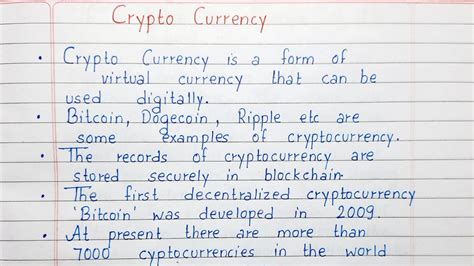 Crypto Currency
• Crypto Currency is a form of
virtual currency that can be
used digitally.
• Bitcoin, Dogecoin, Ripple etc are
some examples of cryptocurrency.
• The records of cryptocurrency are
stored securely in blockchain.
• The first decentralized cryptocurrency
'Bitcoin' was developed in 2009.
• At present there are more than
7000 cyptocurrencies in the world